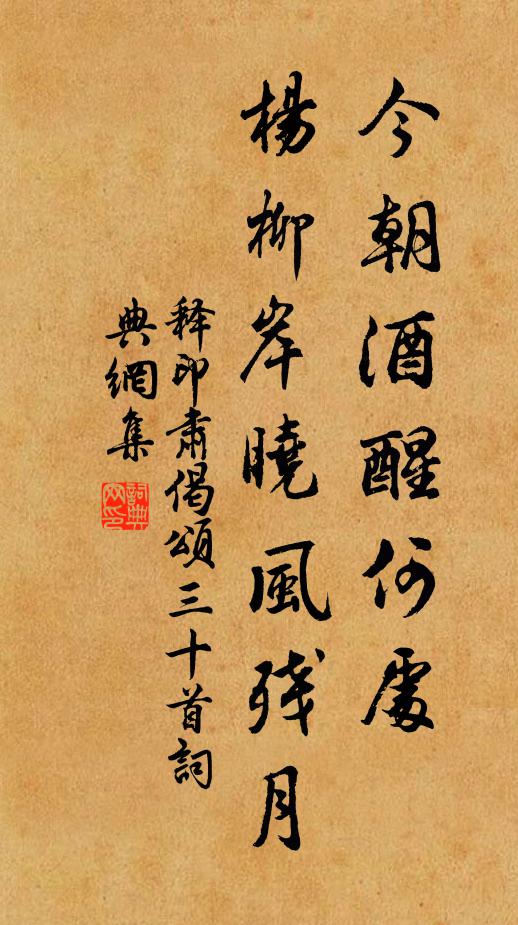 今朝酒醒何處
楊柳岸曉風殘月
释印肅偈頌三十首詞
典網集
詞典網印